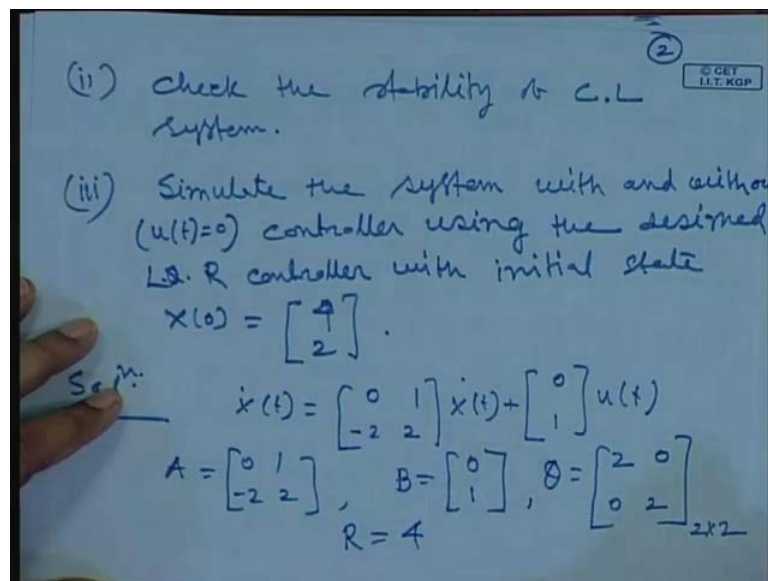 ②
© CET
I.I.T. KGP
(ii) Check the stability of C.L
system.
(iii) Simulate the system with and withou
(u(t)=0) controller using the desired
L.Q.R controller with initial state
X(0) = [4 2] .
Solⁿ.
ẋ(t) = [0 1 -2 2] ẋ(t) + [0 1] u(t)
A = [0 1 -2 2] , B = [0 1] , Q = [2 0 0 2] 2x2
R = 4